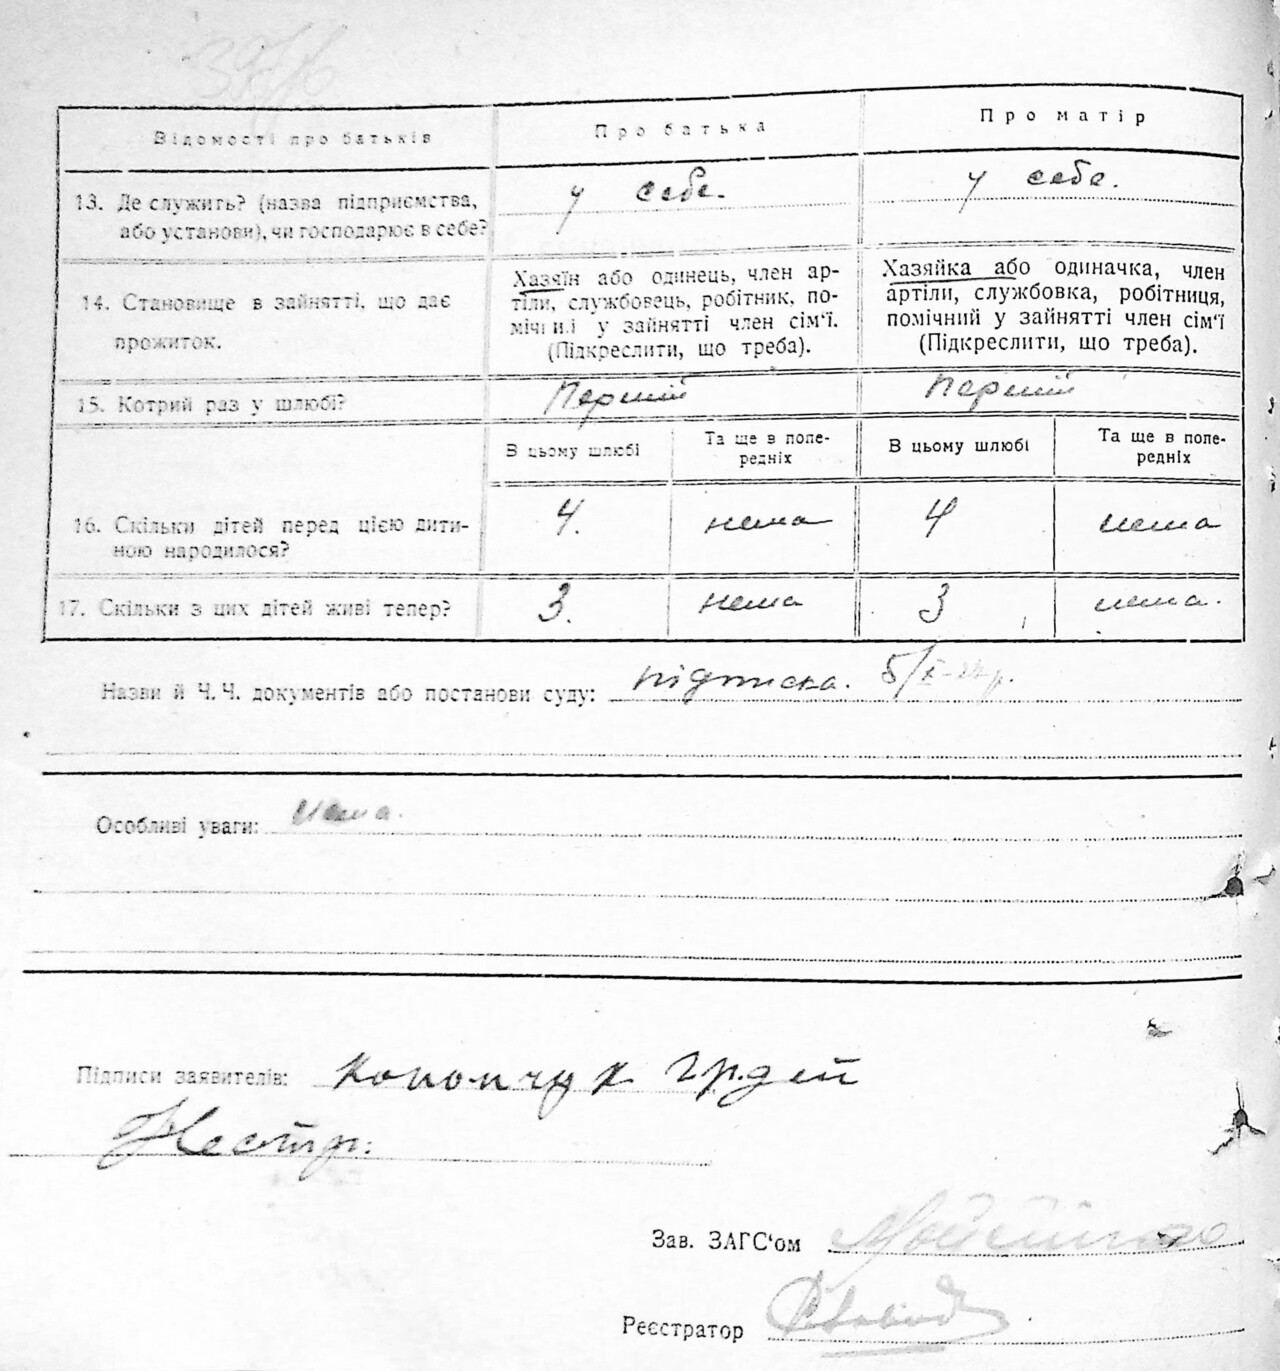 Відомості про батьків
Про батька
Про матір
13. Де служить? (назва підприємства,
або установи), чи господарює в себе?
у себе.
у себе.
14. Становище в зайнятті, що дає
прожиток.
Хазяїн або одинець, член ар-
тіли, службовець, робітник, по-
мічний у зайнятті член сім'ї.
(Підкреслити, що треба).
Хазяйка або одиначка, член
артіли, службовка, робітниця,
помічний у зайнятті член сім'ї
(Підкреслити, що треба).
15. Котрий раз у шлюбі?
Перший
Перший
В цьому шлюбі
Та ще в попе-
редніх
В цьому шлюбі
Та ще в попе-
редніх
16. Скільки дітей перед цією дити-
ною народилося?
4.
нема
4
нема
17. Скільки з цих дітей живі тепер?
3.
нема
3
нема.
Назви й Ч. Ч. документів або постанови суду: підписка. 5/X
Особливі уваги: нема.
Підписи заявителів:
Зав. ЗАГС'ом
Реєстратор